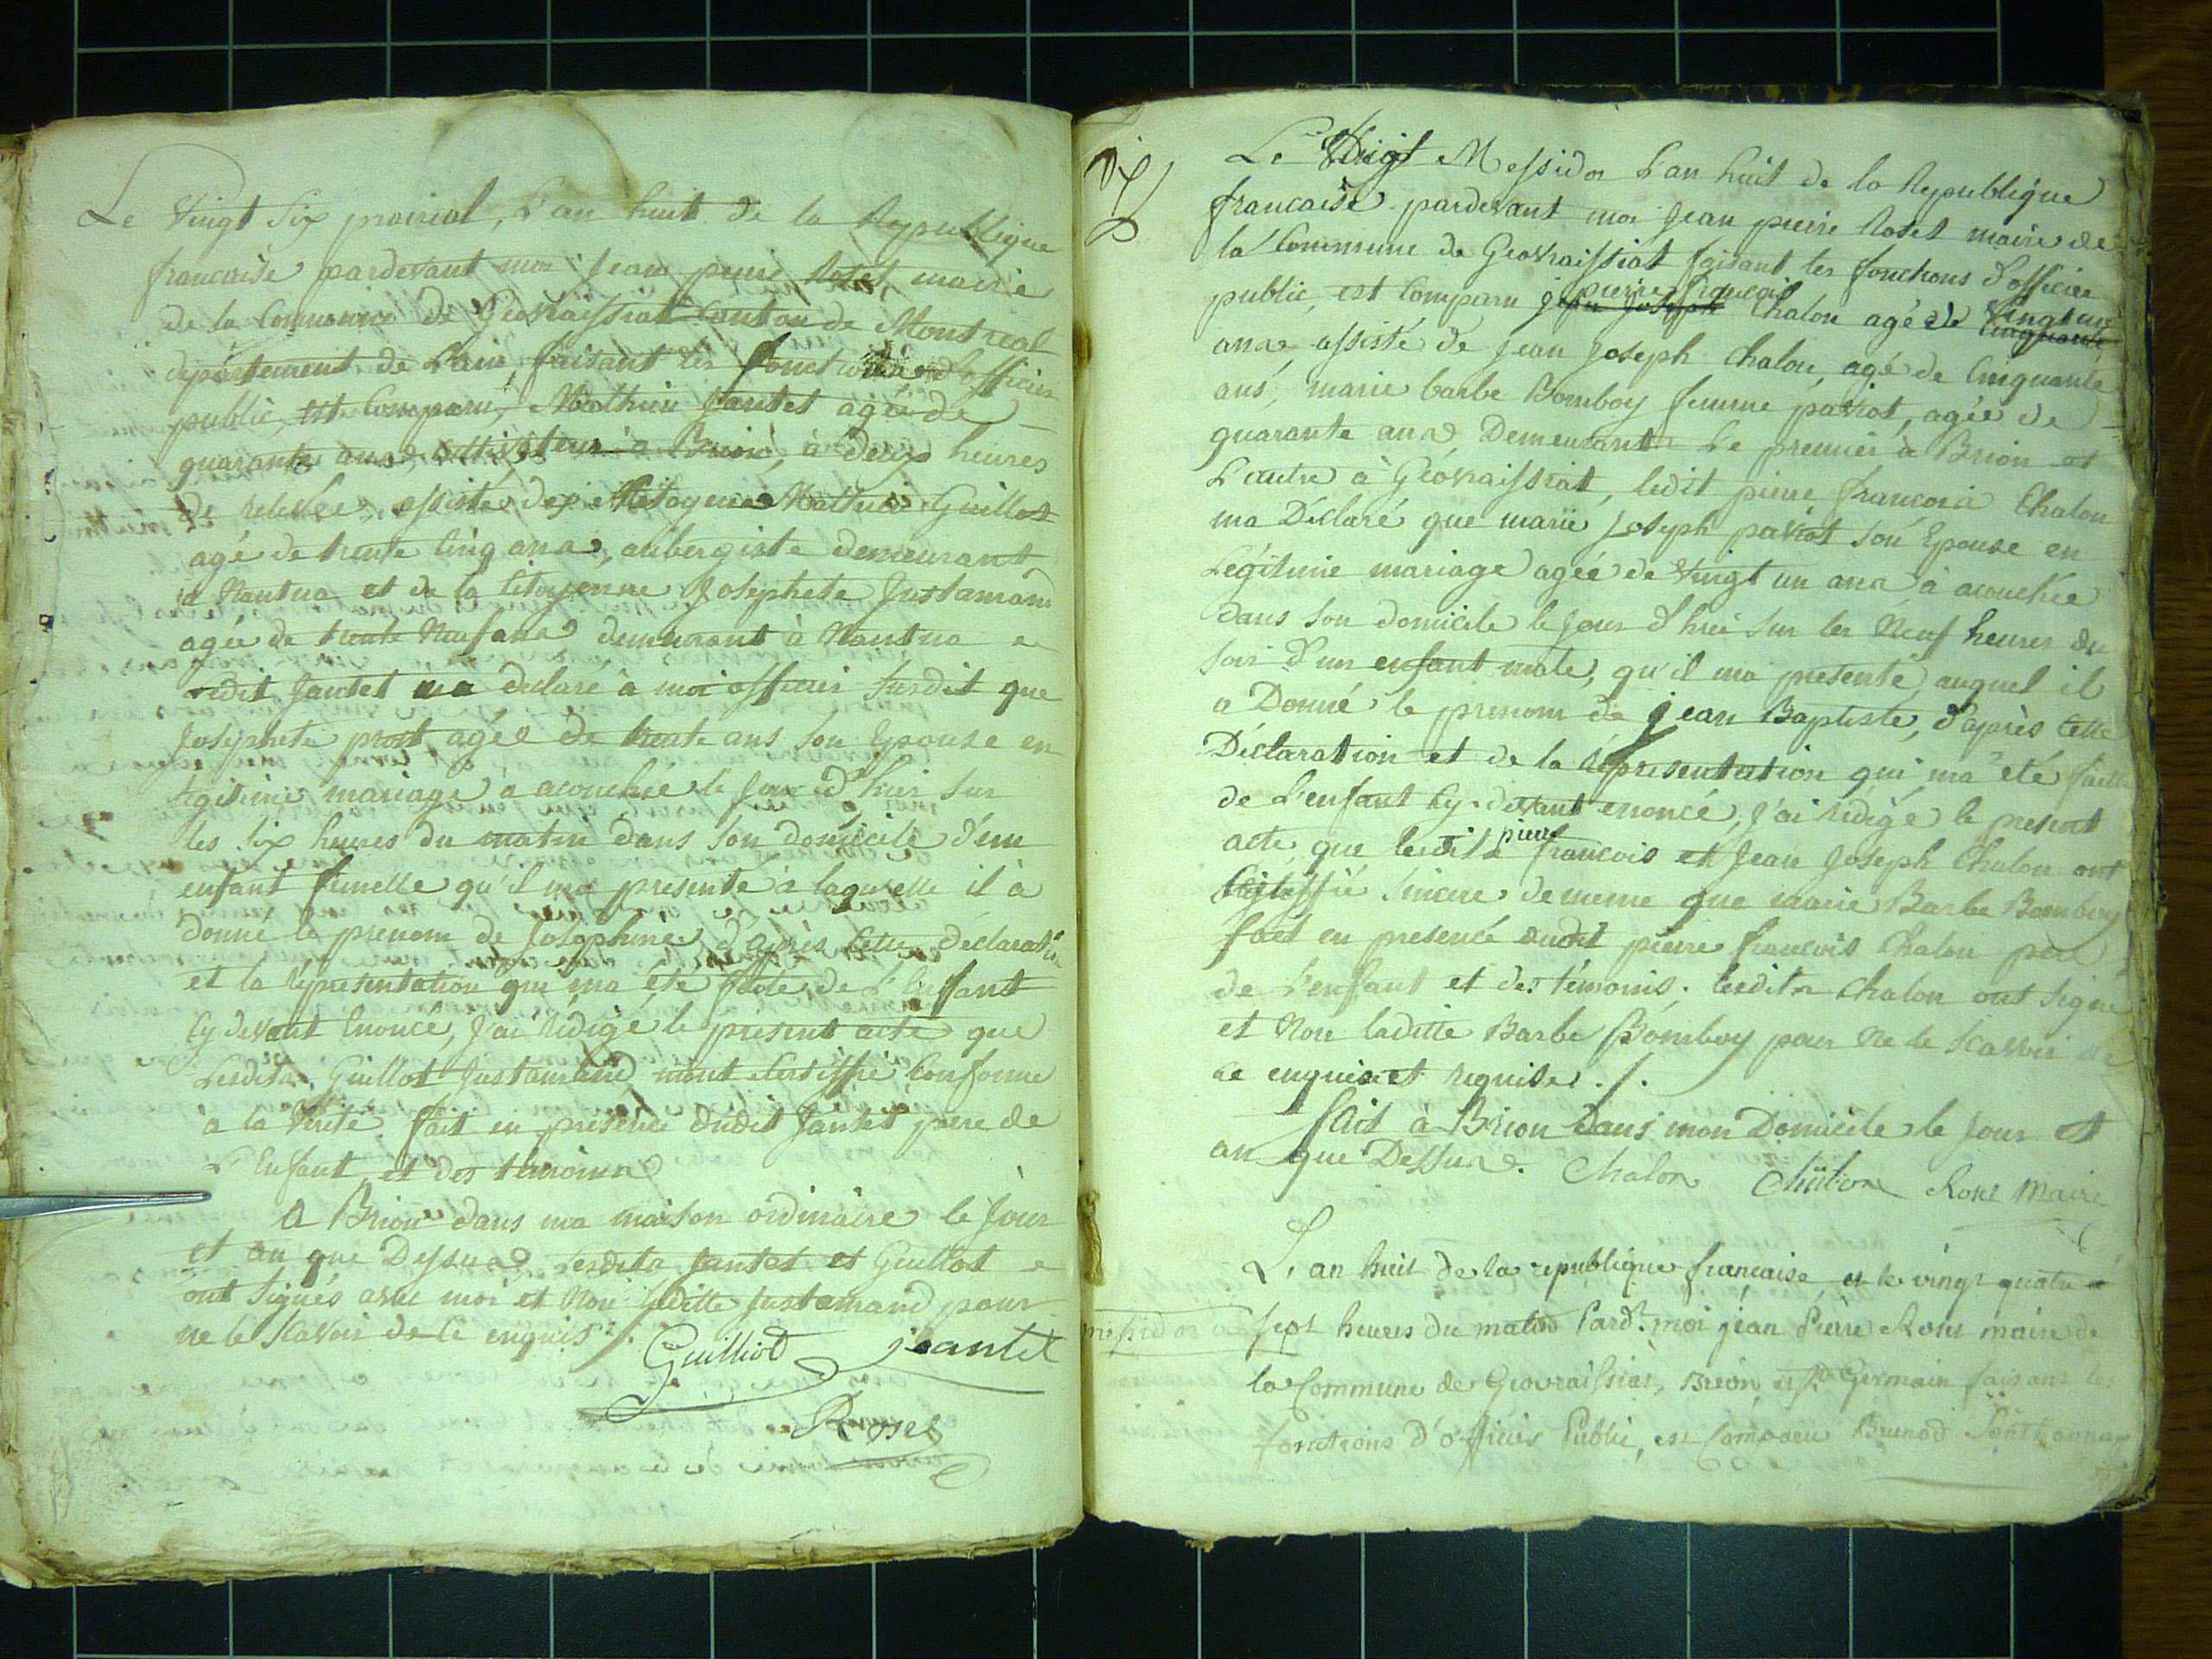 Le Vingt Six prairial, L'an huit de la Republique
francaise pardevant moi Jean pierre Roset, maire
de la Commune de Géovraissiat Canton de Montreal
département de L'ain, faisant les fonctions d'officier
public, est Comparu, Mathieu Jantet agé de
quarante ans cultivateur a Brion, à deux heures
de relevée, assisté des Citoyens Mathieu Guillot
agé de trente Cinq ans, aubergiste demeurant
a Nantua et de la Citoyenne Josephete Justamand
agée de trente Neuf ans demeurant à Nantua
ledit Jantet ma declaré à moi officier Susdit que
Josephete prost agée de trente ans son Epouse en
Légitime mariage à acouchée le Jour d'hier sur
les six heures du matin dans son domicile d'un
enfant fimelle qu'il ma présenté à laquelle il à
donné le prenom de Josephine d'après Cette déclaration
et la réprésentation qui ma été faite de L'Enfant
Cy devant Enoncé, J'ai rédigé le présent acte que
Lesdits Guillot Justamand mont Certiffié Conforme
a la Vérité fait en présence dudit Jantet père de
L'Enfant, et des témoins
A Brion dans ma maison ordinaire le Jour
et an que Dessus Lesdits Jantet et Guillot
ont signés avec moi et Non ladite Justamand pour
ne le scavoir de ce enquis /.
Guilliot Jeantet
Roset
Le Vingt Messidor L'an huit de la Republique
francaise pardevant moi Jean pierre Roset maire de
la Commune de Géovraissiat faisant les fonctions d'officier
pierre francois
public, est Comparu jean joseph Chalon agé de Vingt un cinquante
ans assisté de Jean Joseph Chalon, agé de Cinquante
ans, marie barbe Bomboy femme pavrot, agée de
quarante ans Demeurants Le premier à Brion et
L'autre à Géovraissiat, ledit pierre francois Chalon
ma Déclaré que marie Joseph pavrot son Epouse en
Légitime mariage agée de Vingt un ans à acouchée
dans son domicile le Jour d'hier sur les Neuf heures du
soir d'un enfant male, qu'il ma présenté auquel il
a Donné le prenom de jean Baptiste, d'après Cette
Déclaration et de la réprésentation qui ma été faite
de L'enfant Cy-devant énoncé, J'ai rédigé le présent
pierre
acte que lesdits francois et Jean Joseph Chalon ont
Certiffié sincere de meme que marie Barbe Bomboy
fait en presence dudit pierre francois Chalon pere
de L'enfant et des témoins. lesdits Chalon ont signé
et Non ladite Barbe Bomboy pour Ne le Scavoir de
ce enquise et requise ./.
fait à Brion dans mon Domicile le Jour et
an que Dessus. Chalon Chalon Roset Maire
L'an huit de la république francaise et le vingt quatre
messidor a sept heures du matin Pardt. moi jean Pierre Roset maire de
la Commune de Geovraissiat, Brion et St Germain faisant les
fonctions d'officier Public, est Comparu Brunod